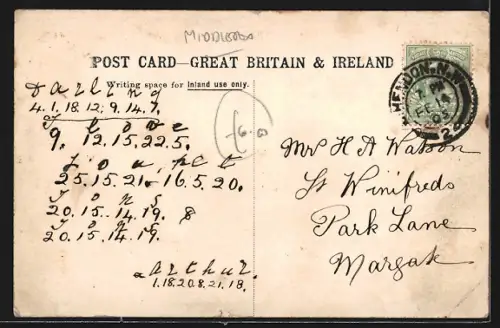 MIDDLESEX
POST CARD—GREAT BRITAIN & IRELAND
Writing space for Inland use only.
HENDON. N.W.
7 PM
FE 14
03
2
Darling
4. 1. 18. 12. 9. 14. 7.
I love
9. 12. 15. 22. 5.
You pet
25. 15. 21. 16. 5. 20.
Tons
20. 15. 14. 19. 8
Tons
20. 15. 14. 19.
Arthur.
1. 18. 20. 8. 21. 18.
6
Mrs H A Watson
St Winifreds
Park Lane
Margate